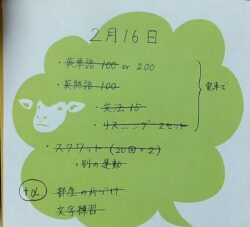 2月16日
・英単語 100 or 200
・英熟語 100
・文法 15
・リスニング 2セット
電車で
・スクワット (20回×2)
・別の運動
+α
部屋の片づけ
文字練習